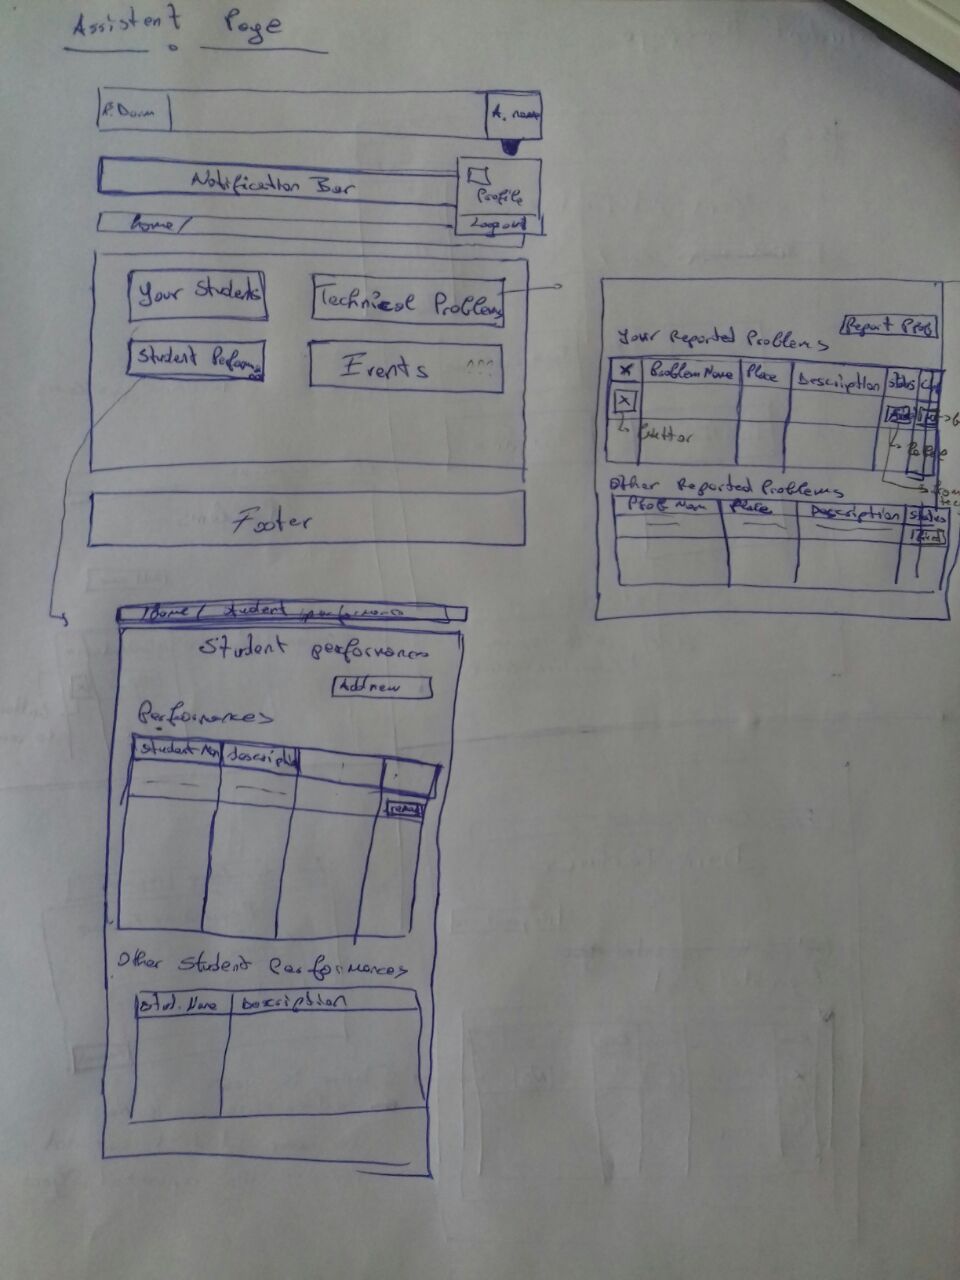 Assistent Page
A. name
Notification Bar
Profile
Logout
home/
Your Students
Technical Problems
Student Perform...
Events
Footer
Report Prob
Your Reported Problems
X Problem Name Place Description Status
X
Button
Other Reported Problems
Prob Nam Place Description Status
Home/ Student performance
Student performances
Add new
Performances
Student Nam Descriptio
Other Student Performances
Stud. Name Description